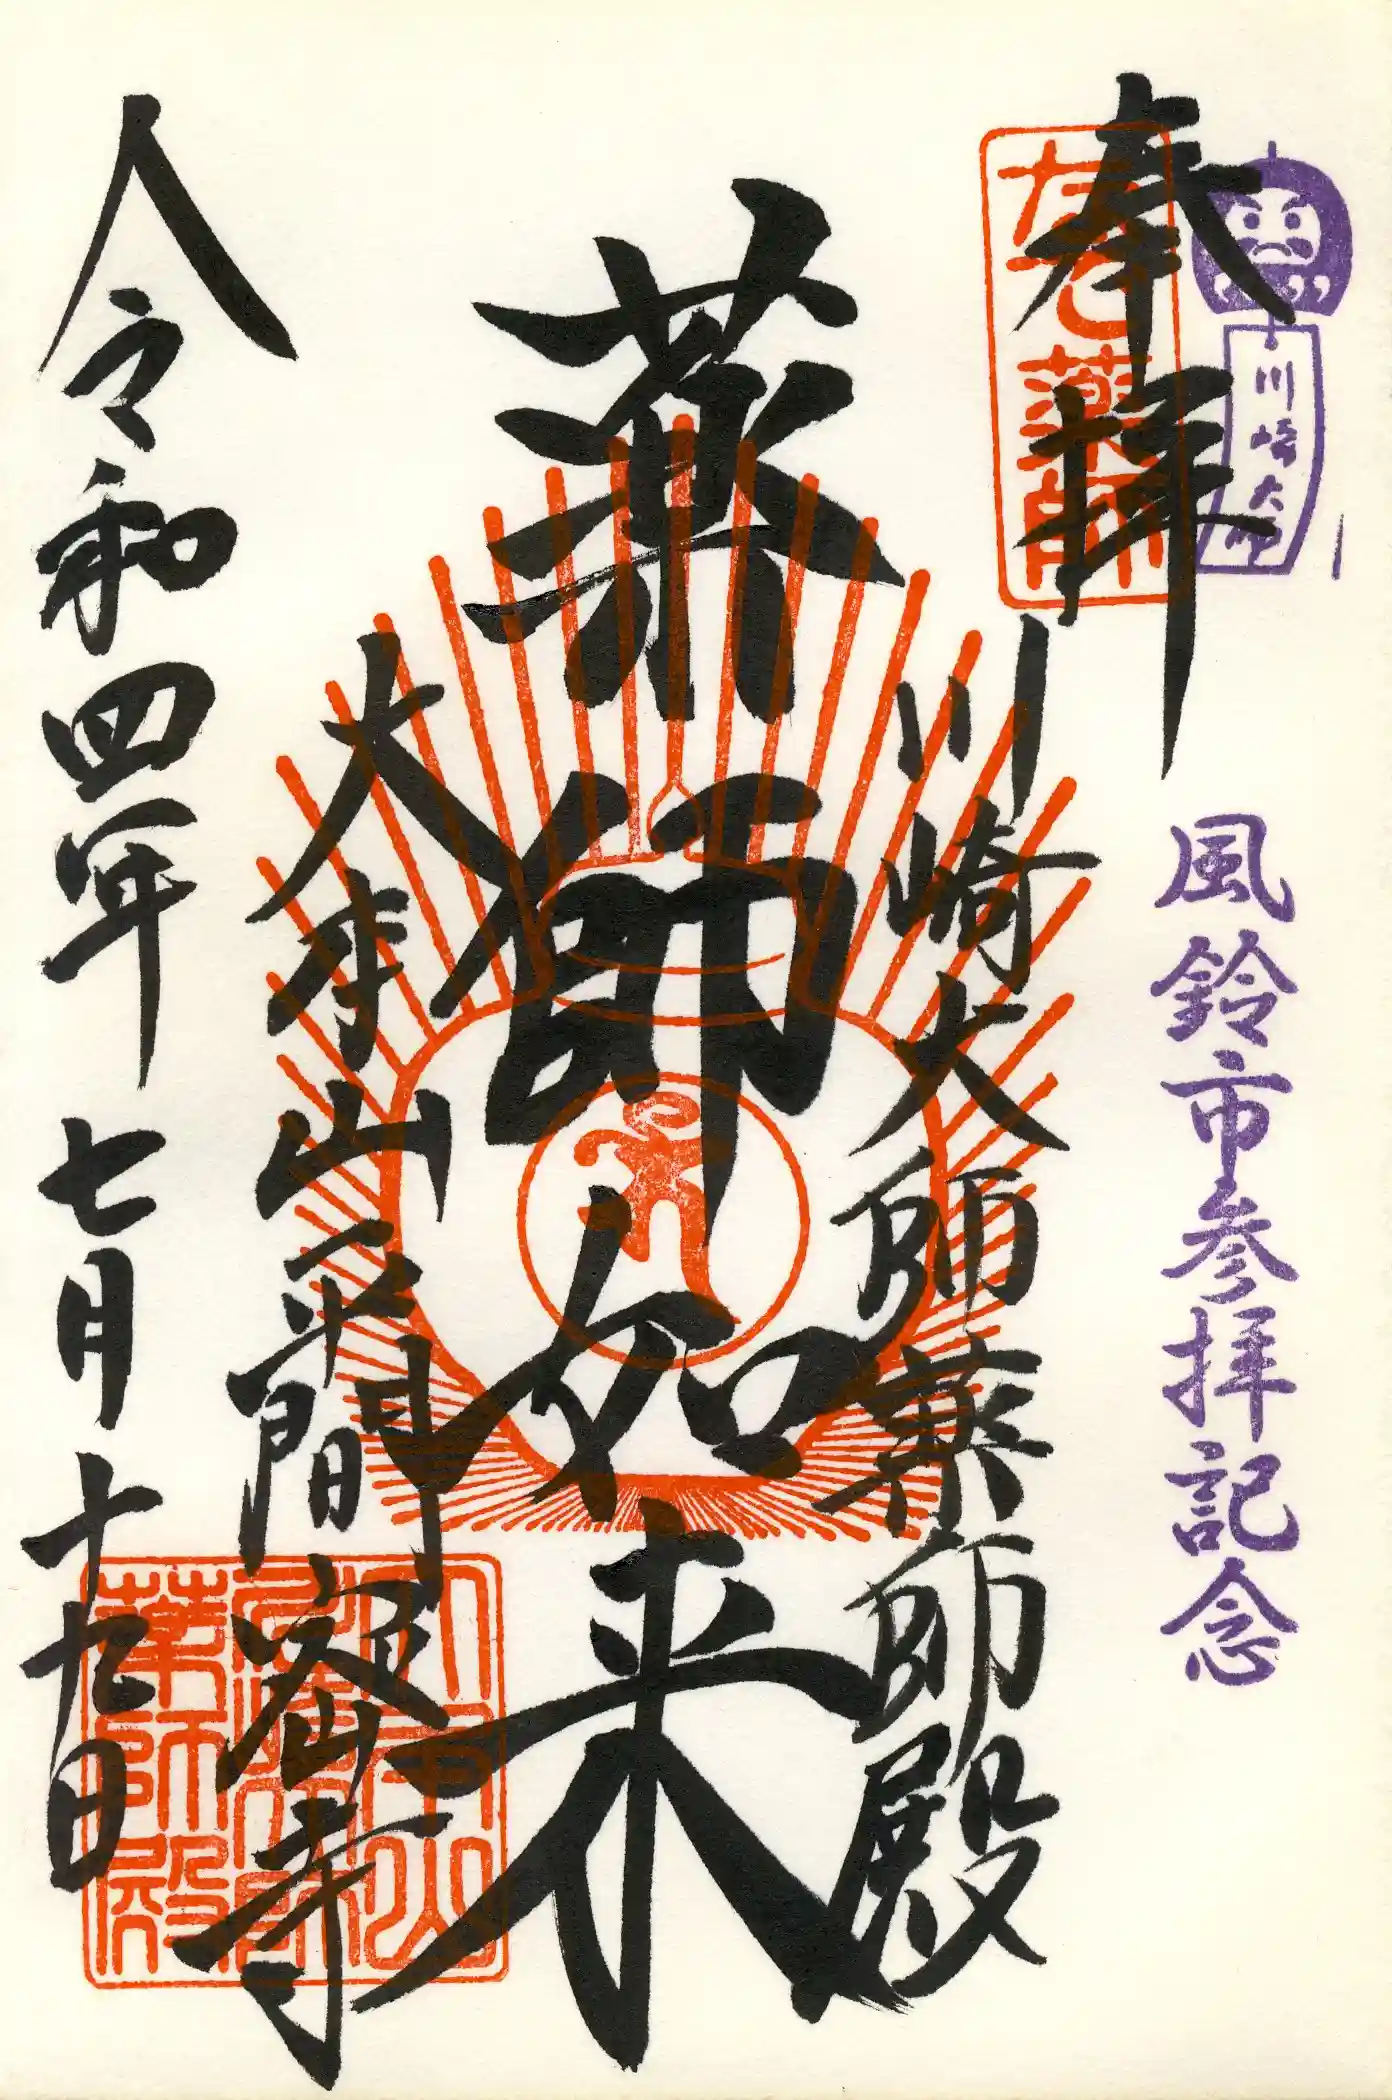 川崎大師
風鈴市参拝記念
奉拝
なで薬師
川崎大師薬師殿
薬師如来
大本山平間寺
令和四年七月十九日
薬師殿